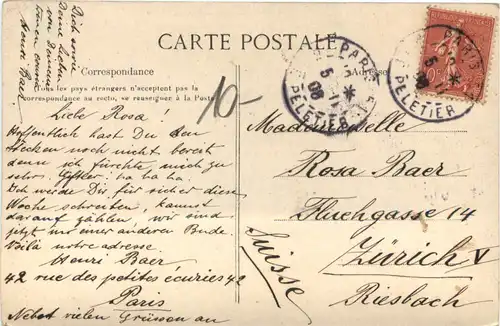 Dich sowie
Deine Lieben
von Deinem
Henri Baer
CARTE POSTALE
Correspondance
Adresse
Tous les pays étrangers n'acceptent pas la
correspondance au recto, se renseigner à la Poste
10-
PARIS
5
09
PELETIER
PARIS
5
PELETIER
Liebe Rosa!
Hoffentlich hast Du den
Stecken noch nicht bereit
denn ich fürchte mich zu
sehr. ha ba ha!
Ich werde Dir für sicher diese
Woche schreiben, kannst
darauf zählen, wir sind
jetzt in einer anderen Bude.
Voilà notre adresse.
Henri Baer
42 rue des petites écuries 42
Paris
Nebst vielen Grüssen an
Mademoiselle
Rosa Baer
Fluchgasse 14
Zürich V
Riesbach
Suisse